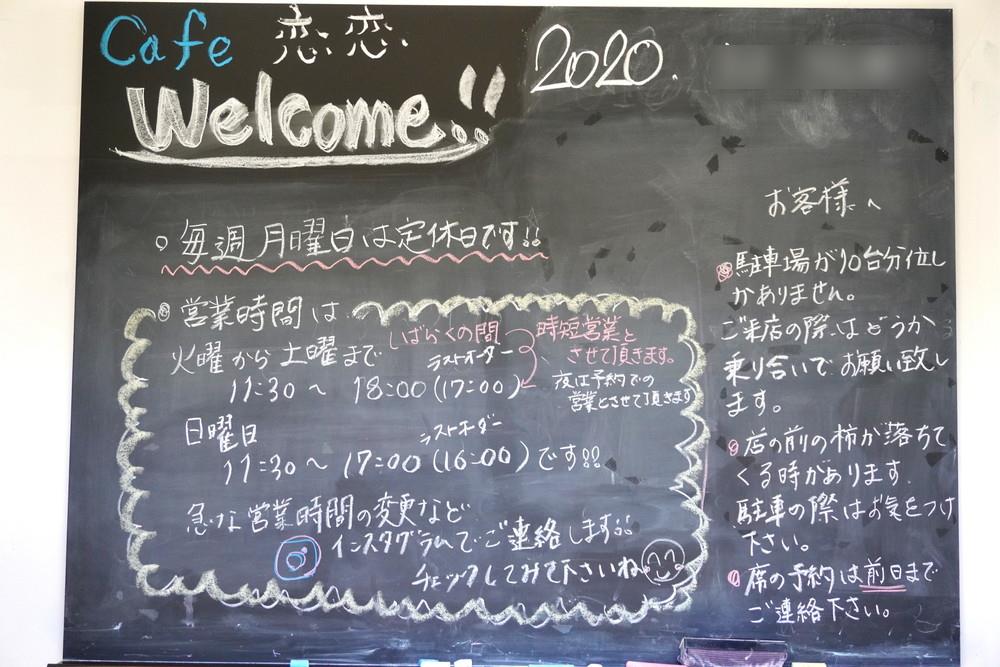 Cafe 恋恋
Welcome!!
2020.
○ 毎週月曜日は定休日です!!
◎ 営業時間は
火曜から土曜まで
しばらくの間
時短営業と
させて頂きます。
ラストオーダー
11:30 〜 18:00 (17:00)
夜は予約での
営業とさせて頂きます
日曜日
ラストオーダー
11:30 〜 17:00 (16:00) です!!
急な営業時間の変更など
インスタグラムでご連絡します!!
チェックしてみて下さいね
お客様へ
◎駐車場が10台分位し
かありません。
ご来店の際はどうか
乗り合いでお願い致し
ます。
◎店の前の柿が落ちて
くる時があります.
駐車の際はお気をつけ
下さい。
◎席の予約は前日まで
ご連絡下さい。